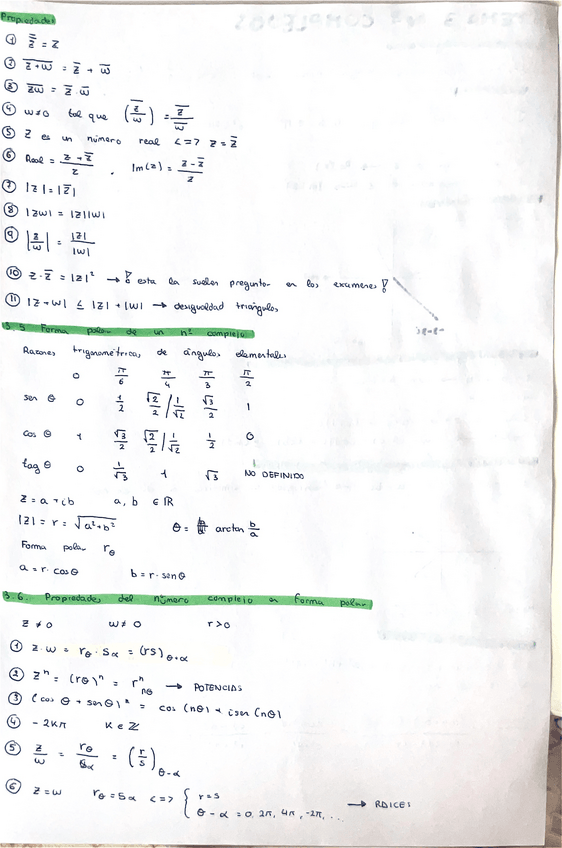 Propiedades
① z̿ = z
② \overline{z+w} = z̄ + w̄
③ \overline{zw} = z̄ · w̄
④ w≠0 tal que \overline{(z/w)} = z̄/w̄
⑤ z es un número real <=> z = z̄
⑥ Real = (z + z̄)/2 , Im(z) = (z - z̄)/2
⑦ |z| = |z̄|
⑧ |zw| = |z||w|
⑨ |z/w| = |z|/|w|
⑩ z · z̄ = |z|² → ! esta la suelen pregunto en los examenes !
⑪ |z+w| ≤ |z| + |w| → desigualdad triángulos
3.5 Forma polar de un nº complejo
Razones trigonométricas de ángulos elementales
0 π/6 π/4 π/3 π/2
sen θ 0 1/2 √2/2 / 1/√2 √3/2 1
cos θ 1 √3/2 √2/2 / 1/√2 1/2 0
tag θ 0 1/√3 1 √3 NO DEFINIDO
z = a + ib a, b ∈ ℝ
|z| = r = √(a²+b²) θ = arctan b/a
Forma polar r_θ
a = r · cosθ b = r · senθ
3.6. Propiedades del número complejo en forma polar
z ≠ 0 w ≠ 0 r > 0
① z · w = r_θ · s_α = (rs)_{θ+α}
② zⁿ = (rθ)ⁿ = rⁿ_{nθ} → POTENCIAS
③ (cos θ + senθ)ⁿ = cos (nθ) + isen (nθ)
④ - 2kπ k ∈ ℤ
⑤ z/w = r_θ/s_α = (r/s)_{θ-α}
⑥ z = w r_θ = s_α <=> { r = s
θ - α = 0, 2π, 4π, -2π, ... → RAICES